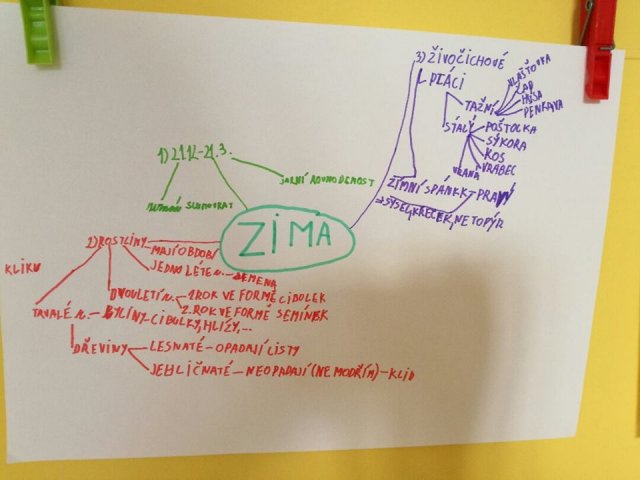 ZIMA
1) 21.12.-21.3.
SLUNOVRAT
JARNÍ ROVNODENOST
2) ROSTLINY
MAJÍ OBDOBÍ
KLIKU
JEDNOLETÉ R. - SEMENA
DVOULETÍ R. - 1. ROK VE FORMĚ CIBULEK
2. ROK VE FORMĚ SEMÍNEK
TRVALÉ R. - BYLINY - CIBULKY, HLÍZY,...
DŘEVINY
LESNATÉ - OPADAJÍ LISTY
JEHLIČNATÉ - NEOPADAJÍ (NE MODŘÍN) - KLID
3) ŽIVOČICHOVÉ
PTÁCI
TAŽNÍ
VLAŠŤOVKA
ČÁP
HUSA
PĚNKAVA
STÁLÍ
POŠTOLKA
SÝKORA
KOS
VRABEC
VRANA
ZIMNÍ SPÁNKK - PRAVÝ
SYSEL, KŘEČEK, NETOPÝR